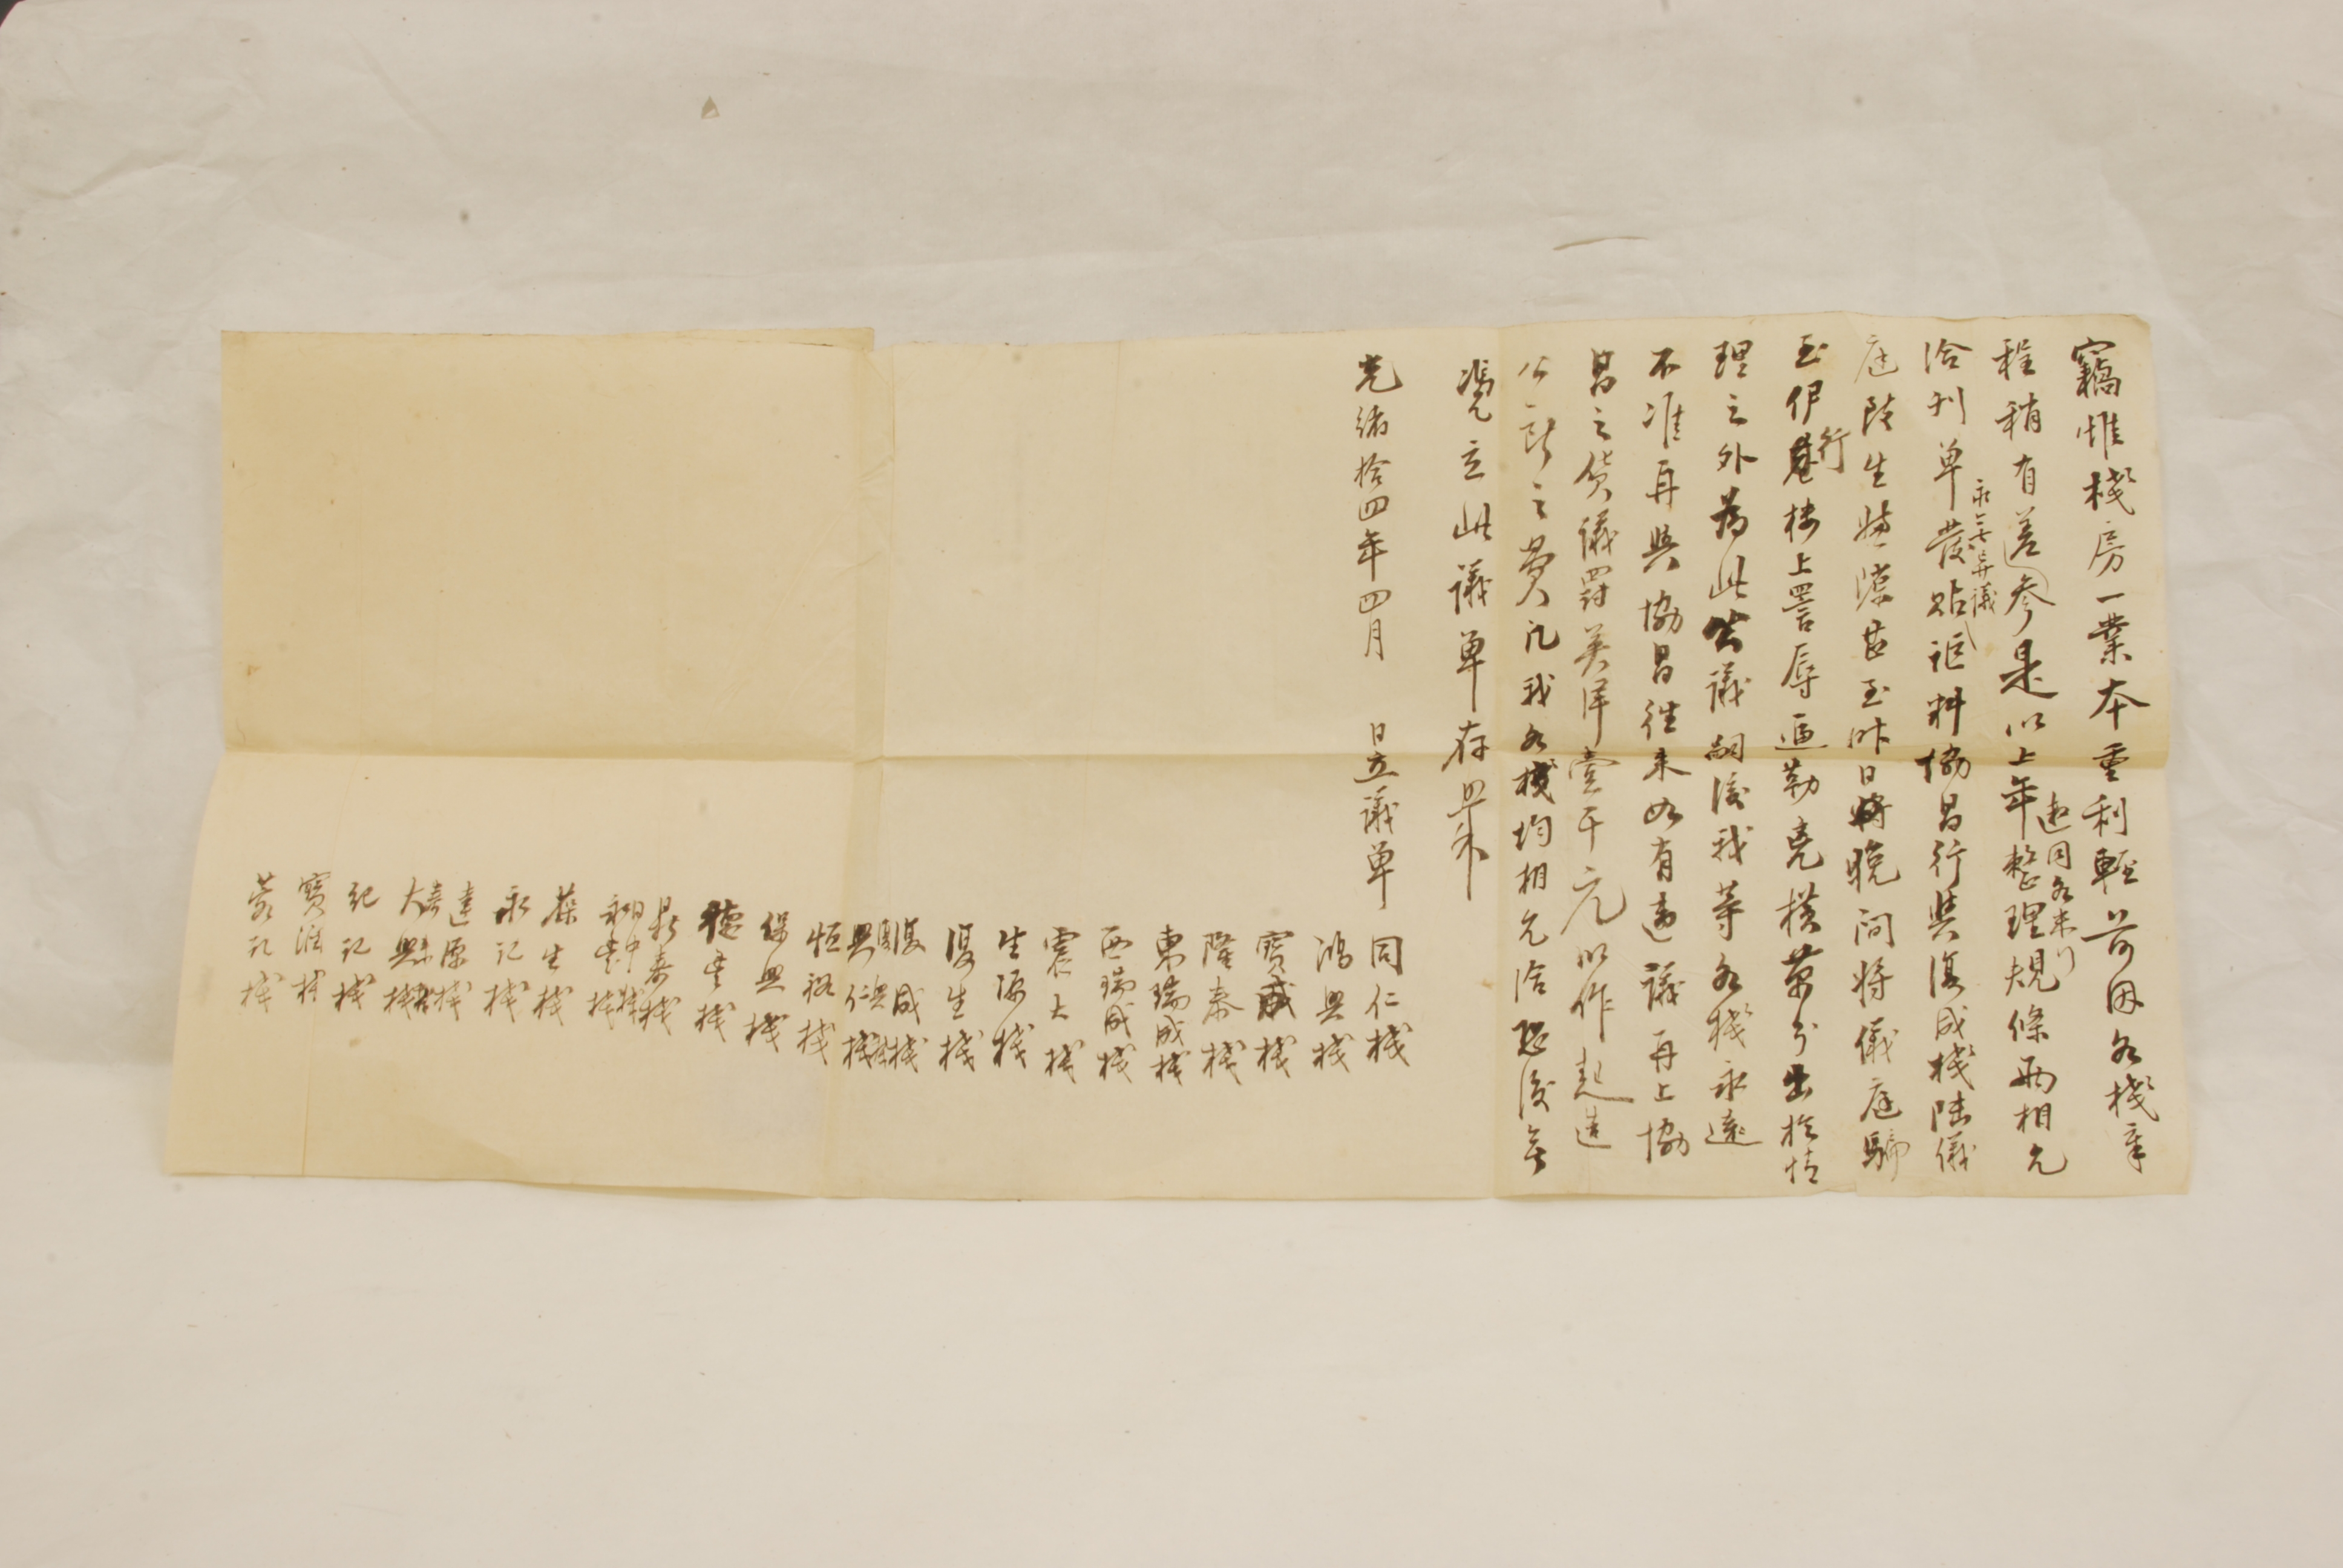 竊惟棧房一業本重利輕前因各棧章
程稍有參差是以上年邀同各東行整理規條兩相允
洽刊單發貼永無異議詎料協昌行與復成棧陸儀
庭陡生嫌隙甚至昨日將晚間將儀庭騙
至伊行樓上詈辱逼勒兇橫萬分出於情
理之外為此公議嗣後我等各棧永遠
不准再與協昌往來如有違議再上協
昌之貨議罰英洋壹千元以作起造
公所之費凡我各棧均相允洽恐後無
憑立此議單存照
光緒拾四年四月 日立議單
同仁棧
鴻興棧
寶成棧
隆泰棧
東瑞成棧
西瑞成棧
震大棧
生源棧
復生棧
復成棧
興仁棧
恒裕棧
保興棧
德豐棧
鼎泰棧
永豐棧
葆生棧
永記棧
達源棧
大興棧
紀記棧
寶
記棧